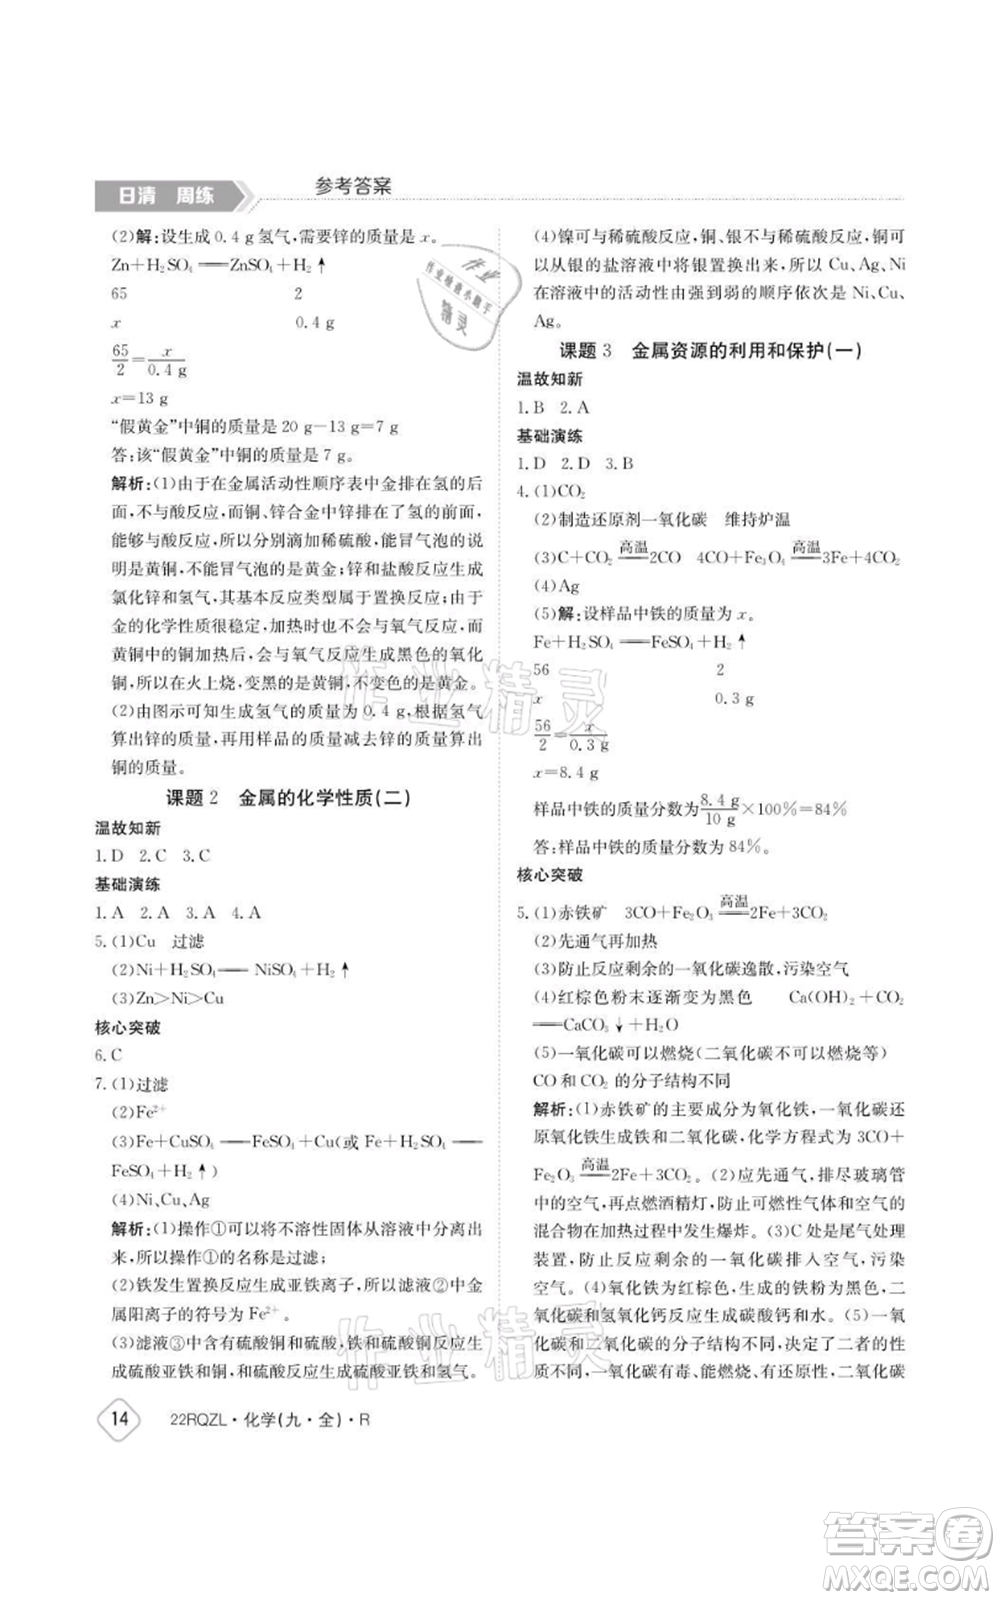 日清 周练
参考答案
(2)解:设生成0.4 g氢气,需要锌的质量是x。
Zn+H₂SO₄══ZnSO₄+H₂↑
65 2
x 0.4 g
65/2=x/0.4 g
x=13 g
“假黄金”中铜的质量是20 g-13=7 g
答:该“假黄金”中铜的质量是7 g。
解析:(1)由于在金属活动性顺序表中金排在氢的后
面,不与酸反应,而铜、锌合金中锌排在了氢的前面,
能够与酸反应,所以分别滴稀硫酸,能够产生气泡的说
明是黄铜,不能冒气泡的是黄金;锌和盐酸反应生成
氯化锌和氢气,其基本反应类型属于置换反应;由于
金的化学性质很稳定,加热时不与氧气反应,而
黄铜中的铜加热后,会与氧气反应生成黑色的氧化
铜,所以在火上烧,变黑的是黄铜,不变色的是黄金。
(2)由图示可知生成氢气的质量为0.4 g,根据氢气
算出锌的质量,再用样品的质量减去锌的质量算出
铜的质量。
课题2 金属的化学性质(二)
温故知新
1.D 2.C 3.C
基础演练
1.A 2.A 3.A 4.A
5.(1)Cu 过滤
(2)Ni+H₂SO₄══NiSO₄+H₂↑
(3)Zn>Ni>Cu
核心突破
6.C
7.(1)过滤
(2)Fe²⁺
(3)Fe+CuSO₄══FeSO₄+Cu(或Fe+H₂SO₄══
FeSO₄+H₂↑)
(4)Ni、Cu、Ag
解析:(1)操作①可以将不溶性固体从溶液中分离出
来,所以操作①的名称是过滤;
(2)铁发生置换反应生成亚铁离子,所以滤液②中金
属阳离子的符号为Fe²⁺。
(3)滤液③中含有硫酸铜和硫酸,铁和硫酸铜反应生
成硫酸亚铁和铜,和硫酸反应生成硫酸亚铁和氢气。
14 22RQZL·化学(九·全)·R
(4)镍可与稀硫酸反应,铜、银不与稀硫酸反应,铜可
以从银的盐溶液中将银置换出来,所以Cu、Ag、Ni
在溶液中的活动性由强到弱的顺序依次是Ni、Cu、
Ag。
课题3 金属资源的利用和保护(一)
温故知新
1.B 2.A
基础演练
1.D 2.D 3.B
4.(1)CO₂
(2)制造还原剂一氧化碳 维持炉温
(3)C+CO₂ 高温══2CO 4CO+Fe₃O₄ 高温══3Fe+4CO₂
(4)Ag
(5)解:设样品中铁的质量为x。
Fe+H₂SO₄══FeSO₄+H₂↑
56 2
x 0.3 g
56/2=x/0.3 g
x=8.4 g
样品中铁的质量分数为8.4 g/10 g×100%=84%
答:样品中铁的质量分数为84%。
核心突破
5.(1)赤铁矿 3CO+Fe₂O₃ 高温══2Fe+3CO₂
(2)先通气再加热
(3)防止反应剩余的一氧化碳逸散,污染空气
(4)红棕色粉末逐渐变为黑色 Ca(OH)₂+CO₂
══CaCO₃↓+H₂O
(5)一氧化碳可以燃烧(二氧化碳不可以燃烧等)
CO和CO₂的分子结构不同
解析:(1)赤铁矿的主要成分为氧化铁,一氧化碳还
原氧化铁生成铁和二氧化碳,化学方程式为3CO+
Fe₂O₃ 高温══2Fe+3CO₂。(2)应先通气,排尽玻璃管
中的空气,再点燃酒精灯,防止可燃性气体和空气的
混合物在加热过程中发生爆炸。(3)C处是尾气处理
装置,防止反应剩余的一氧化碳排入空气,污染
空气。(4)氧化铁为红棕色,生成的铁粉为黑色,二
氧化碳和氢氧化钙反应生成碳酸钙和水。(5)一氧
化碳和二氧化碳的分子结构不同,决定了二者的化
学性质不同,一氧化碳有毒、能燃烧,而二氧化碳
作业
作业检查小助手
精灵
作业精灵
作业精灵
答案卷
MXQE.COM